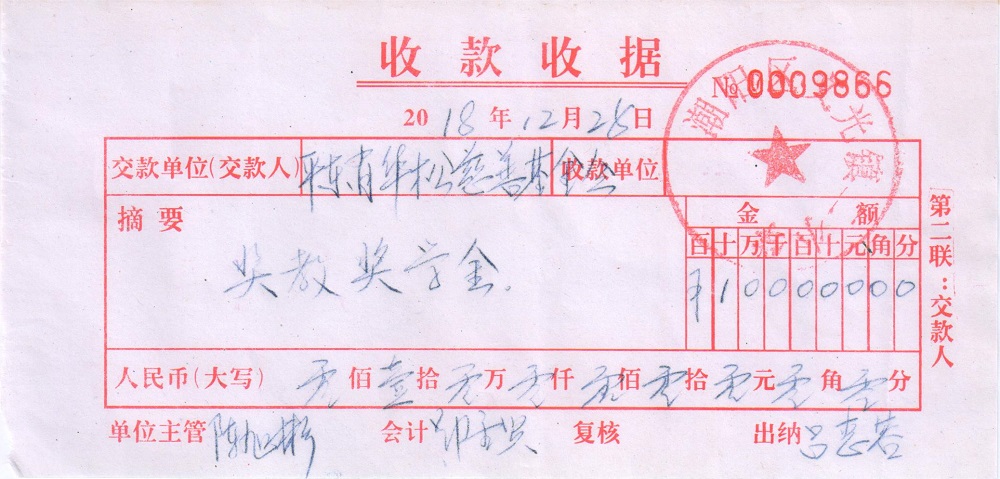 收款收据
№ 0009866
2018年12月28日
交款单位(交款人) 华松慈善基金会 收款单位
摘要 金额
百十万千百十元角分
奖教奖学金.
¥10000000
人民币(大写) 零佰壹拾零万零仟零佰零拾零元零角零分
单位主管 陈旭彬 会计 复核 出纳 吕志芸
第二联：交款人
潮阳区 光镇